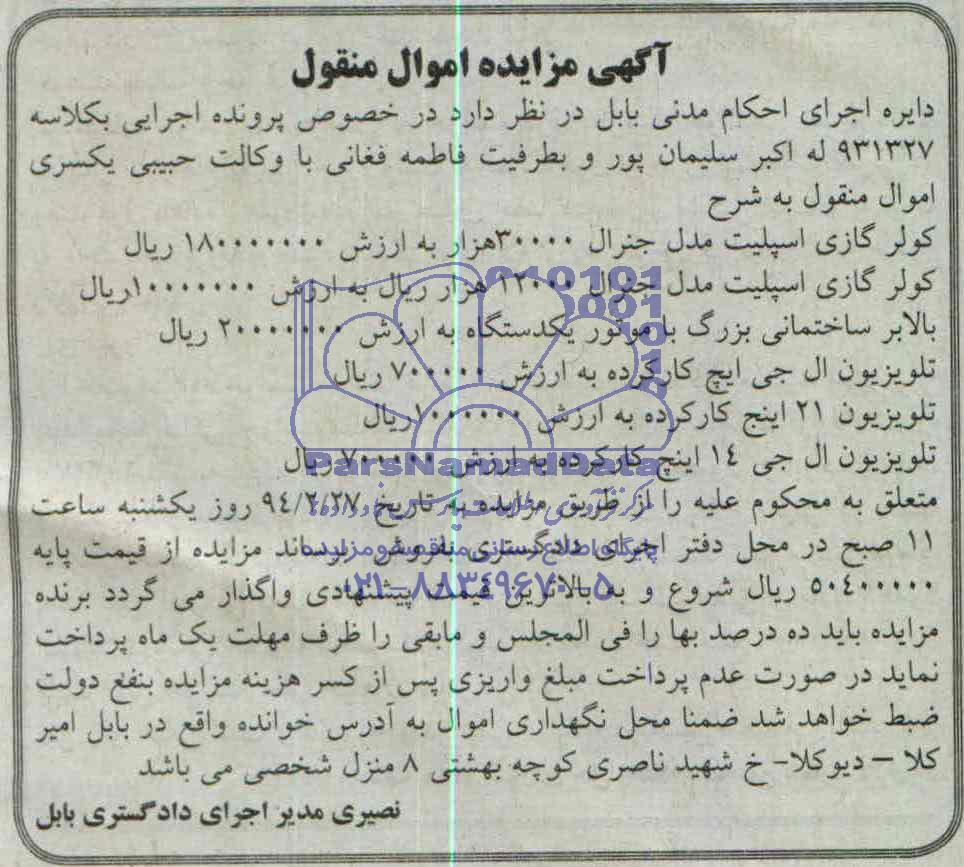 آگهی مزایده اموال منقول
دایره اجرای احکام مدنی بابل در نظر دارد در خصوص پرونده اجرایی بکلاسه
۹۳۱۳۲۷ له اکبر سلیمان پور و بطرفیت فاطمه فغانی با وکالت حبیبی یکسری
اموال منقول به شرح
کولر گازی اسپلیت مدل جنرال ۳۰۰۰۰هزار به ارزش ۱۸۰۰۰۰۰۰۰ ریال
کولر گازی اسپلیت مدل جنرال ۱۲۰۰۰ هزار ریال به ارزش ۱۰۰۰۰۰۰۰ریال
بالابر ساختمانی بزرگ با موتور یکدستگاه به ارزش ۲۰۰۰۰۰۰۰ ریال
تلویزیون ال جی ایچ کارکرده به ارزش ۷۰۰۰۰۰ ریال
تلویزیون ۲۱ اینچ کارکرده به ارزش ۱۰۰۰۰۰۰ریال
تلویزیون ال جی ۱۴ اینچ کارکرده به ارزش ۷۰۰۰۰۰ ریال
ParsNamadData
متعلق به محکوم علیه را از طریق مزایده به تاریخ ۹۴/۲/۲۷ روز یکشنبه ساعت
۱۱ صبح در محل دفتر اجرای دادگستری بفروش برساند مزایده از قیمت پایه
پایگاه اطلاع رسانی مناقصه و مزایده
۵۰۴۰۰۰۰۰ ریال شروع و به بالاترین قیمت پیشنهادی واگذار می گردد برنده
۰۲۱-۸۸۳۴۹۶۷۰-۵
مزایده باید ده درصد بها را فی المجلس و مابقی را ظرف مهلت یک ماه پرداخت
نماید در صورت عدم پرداخت مبلغ واریزی پس از کسر هزینه مزایده بنفع دولت
ضبط خواهد شد ضمنا محل نگهداری اموال به آدرس خوانده واقع در بابل امیر
کلا – دیوکلا- خ شهید ناصری کوچه بهشتی ۸ منزل شخصی می باشد
نصیری مدیر اجرای دادگستری بابل